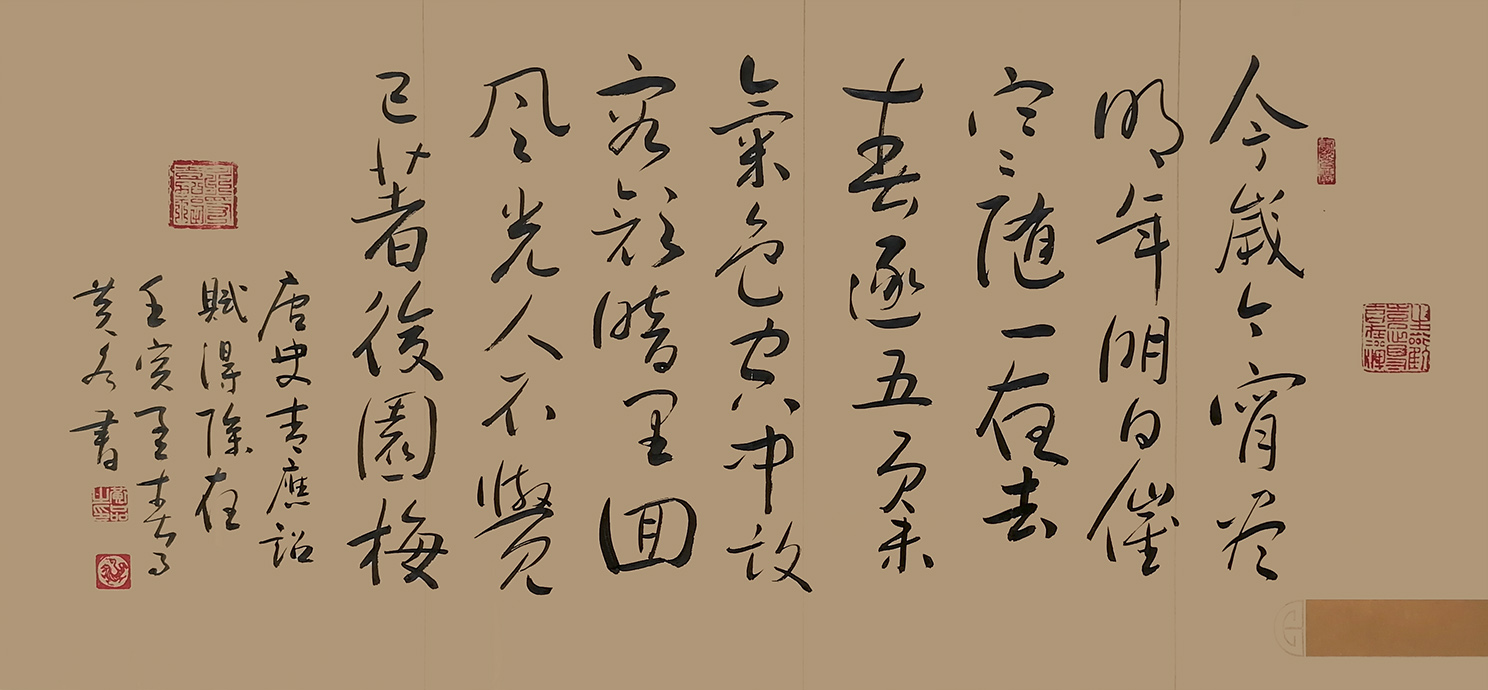 今歲今宵尽
明年明日催
寒随一夜去
春逐五更来
氣色空中改
容颜暗里囬
風光人不覺
已著後園梅
唐史青應詔
賦得除夜
壬寅孟春月
黄書